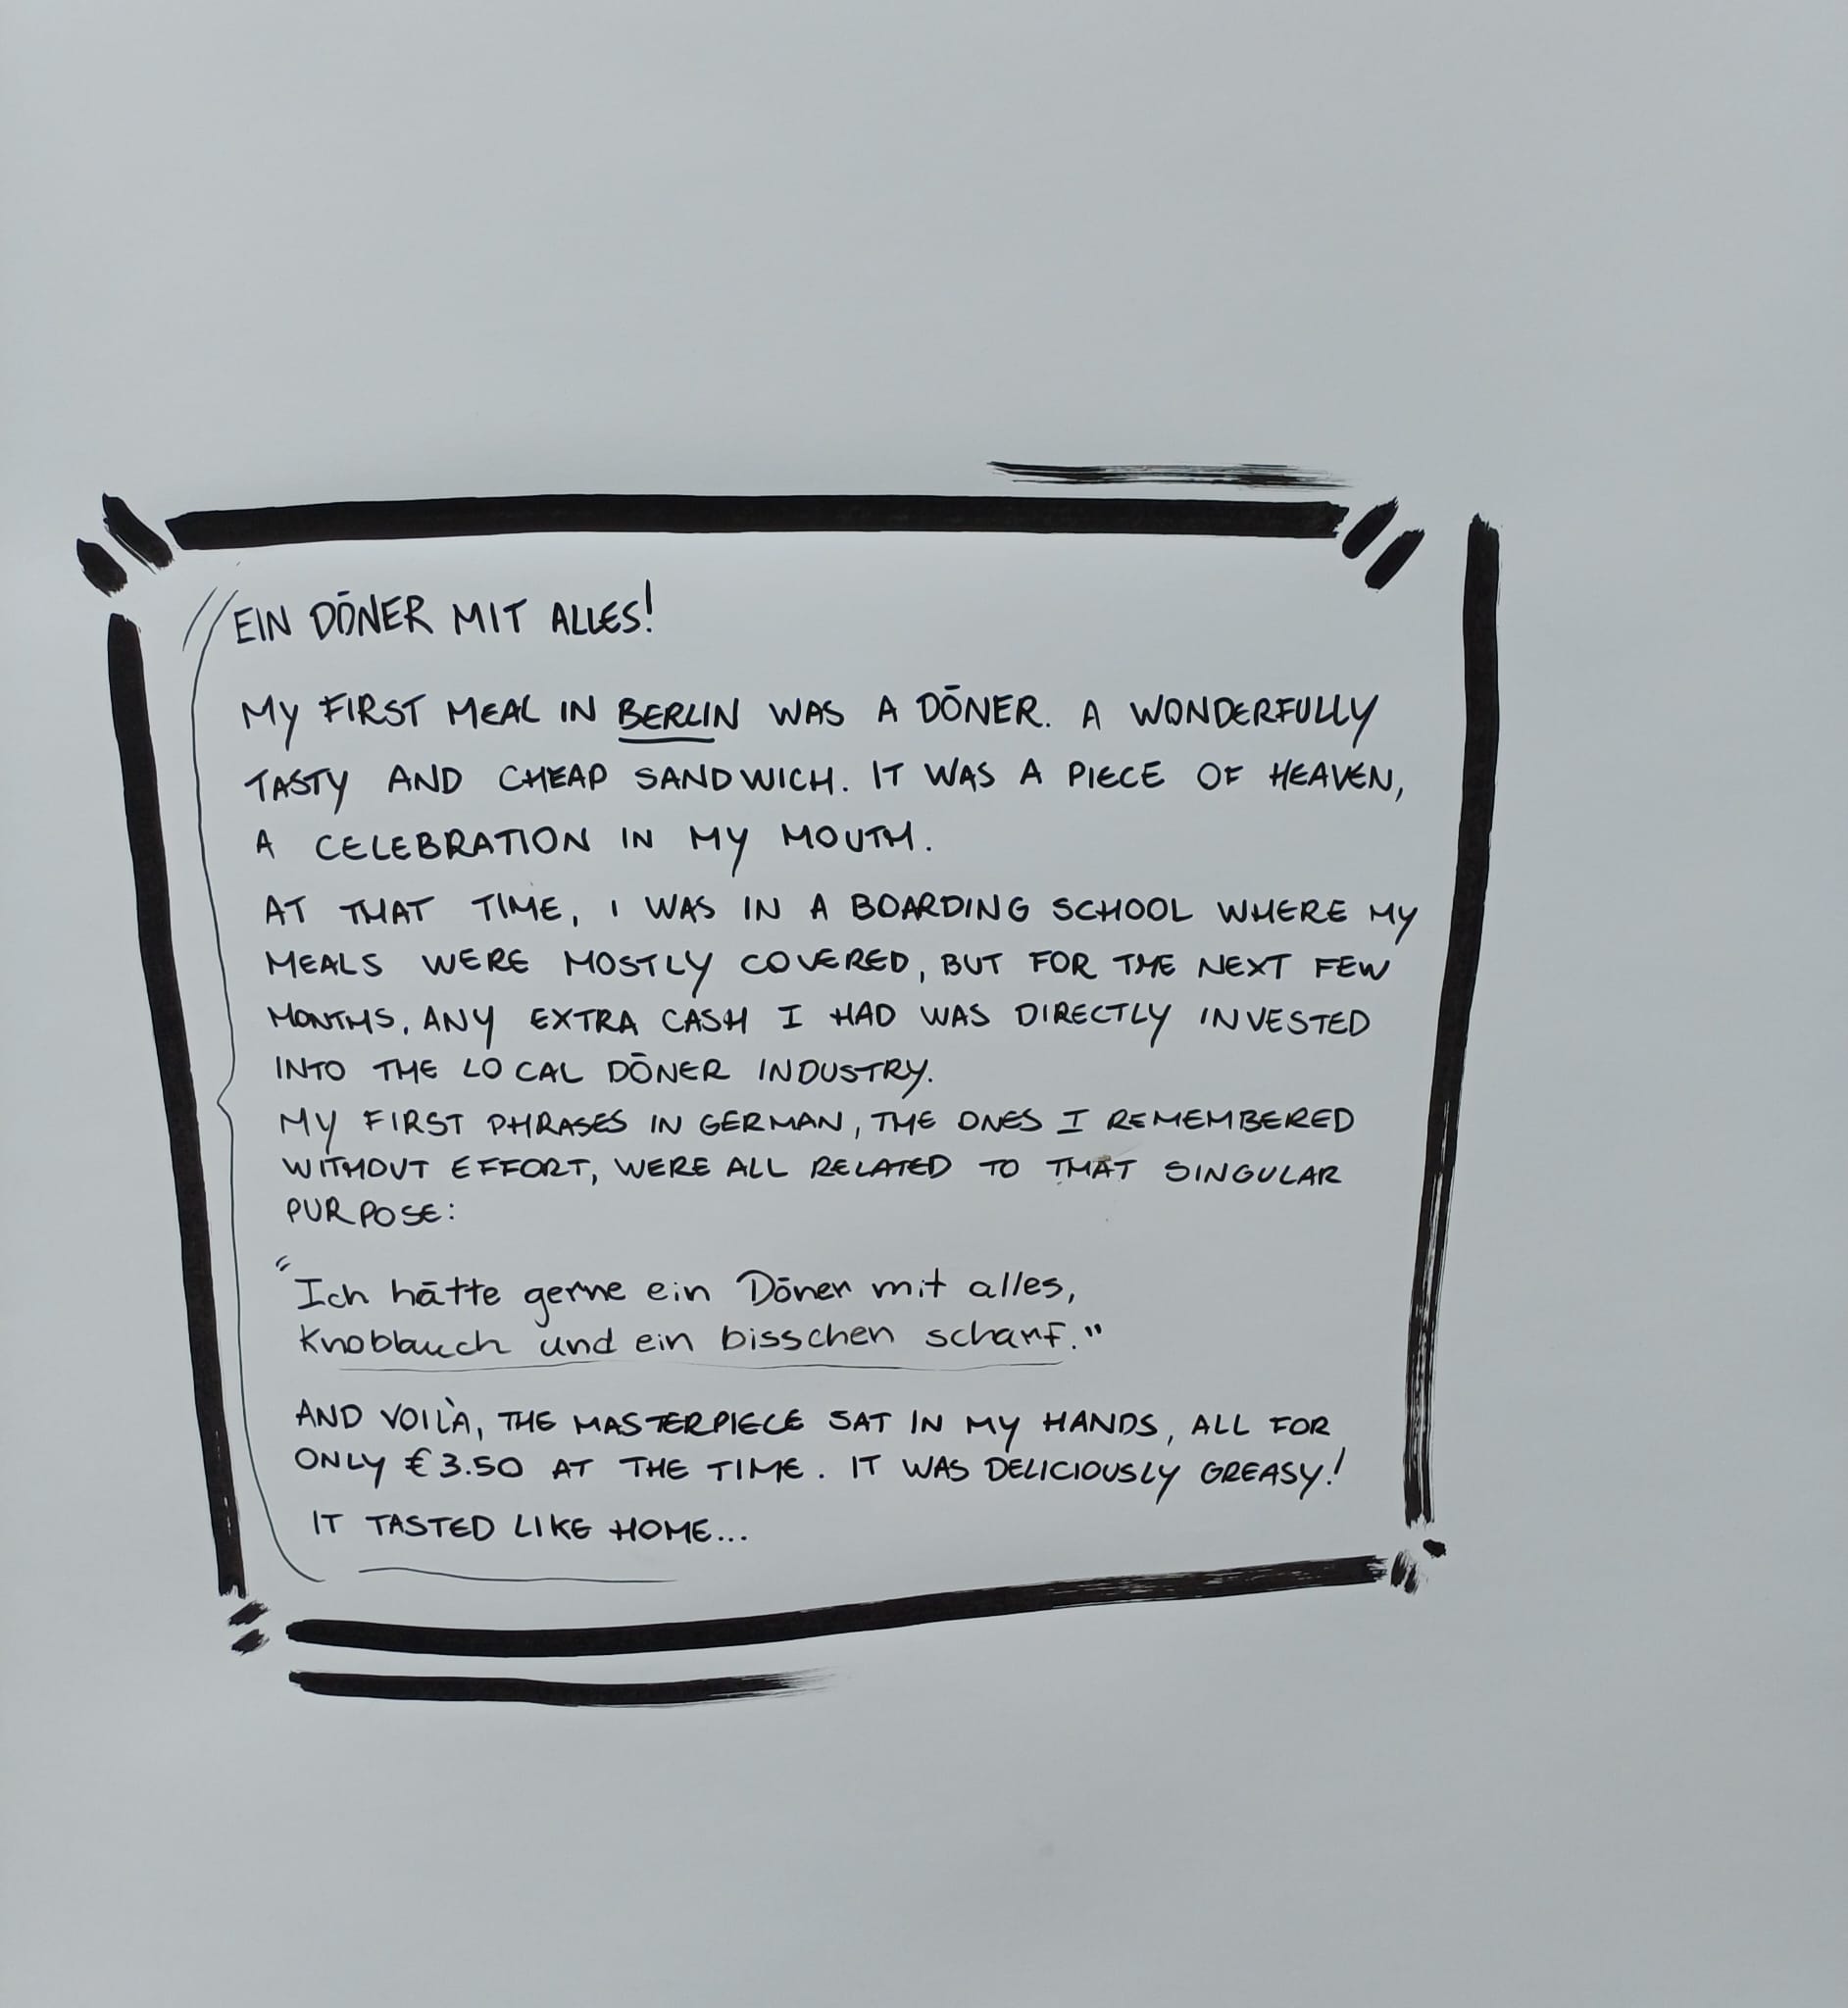 EIN DÖNER MIT ALLES!
MY FIRST MEAL IN BERLIN WAS A DÖNER. A WONDERFULLY
TASTY AND CHEAP SANDWICH. IT WAS A PIECE OF HEAVEN,
A CELEBRATION IN MY MOUTH.
AT THAT TIME, I WAS IN A BOARDING SCHOOL WHERE MY
MEALS WERE MOSTLY COVERED, BUT FOR THE NEXT FEW
MONTHS, ANY EXTRA CASH I HAD WAS DIRECTLY INVESTED
INTO THE LOCAL DÖNER INDUSTRY.
MY FIRST PHRASES IN GERMAN, THE ONES I REMEMBERED
WITHOUT EFFORT, WERE ALL RELATED TO THAT SINGULAR
PURPOSE:
"Ich hätte gerne ein Döner mit alles,
Knoblauch und ein bisschen scharf."
AND VOILÀ, THE MASTERPIECE SAT IN MY HANDS, ALL FOR
ONLY €3.50 AT THE TIME. IT WAS DELICIOUSLY GREASY!
IT TASTED LIKE HOME...